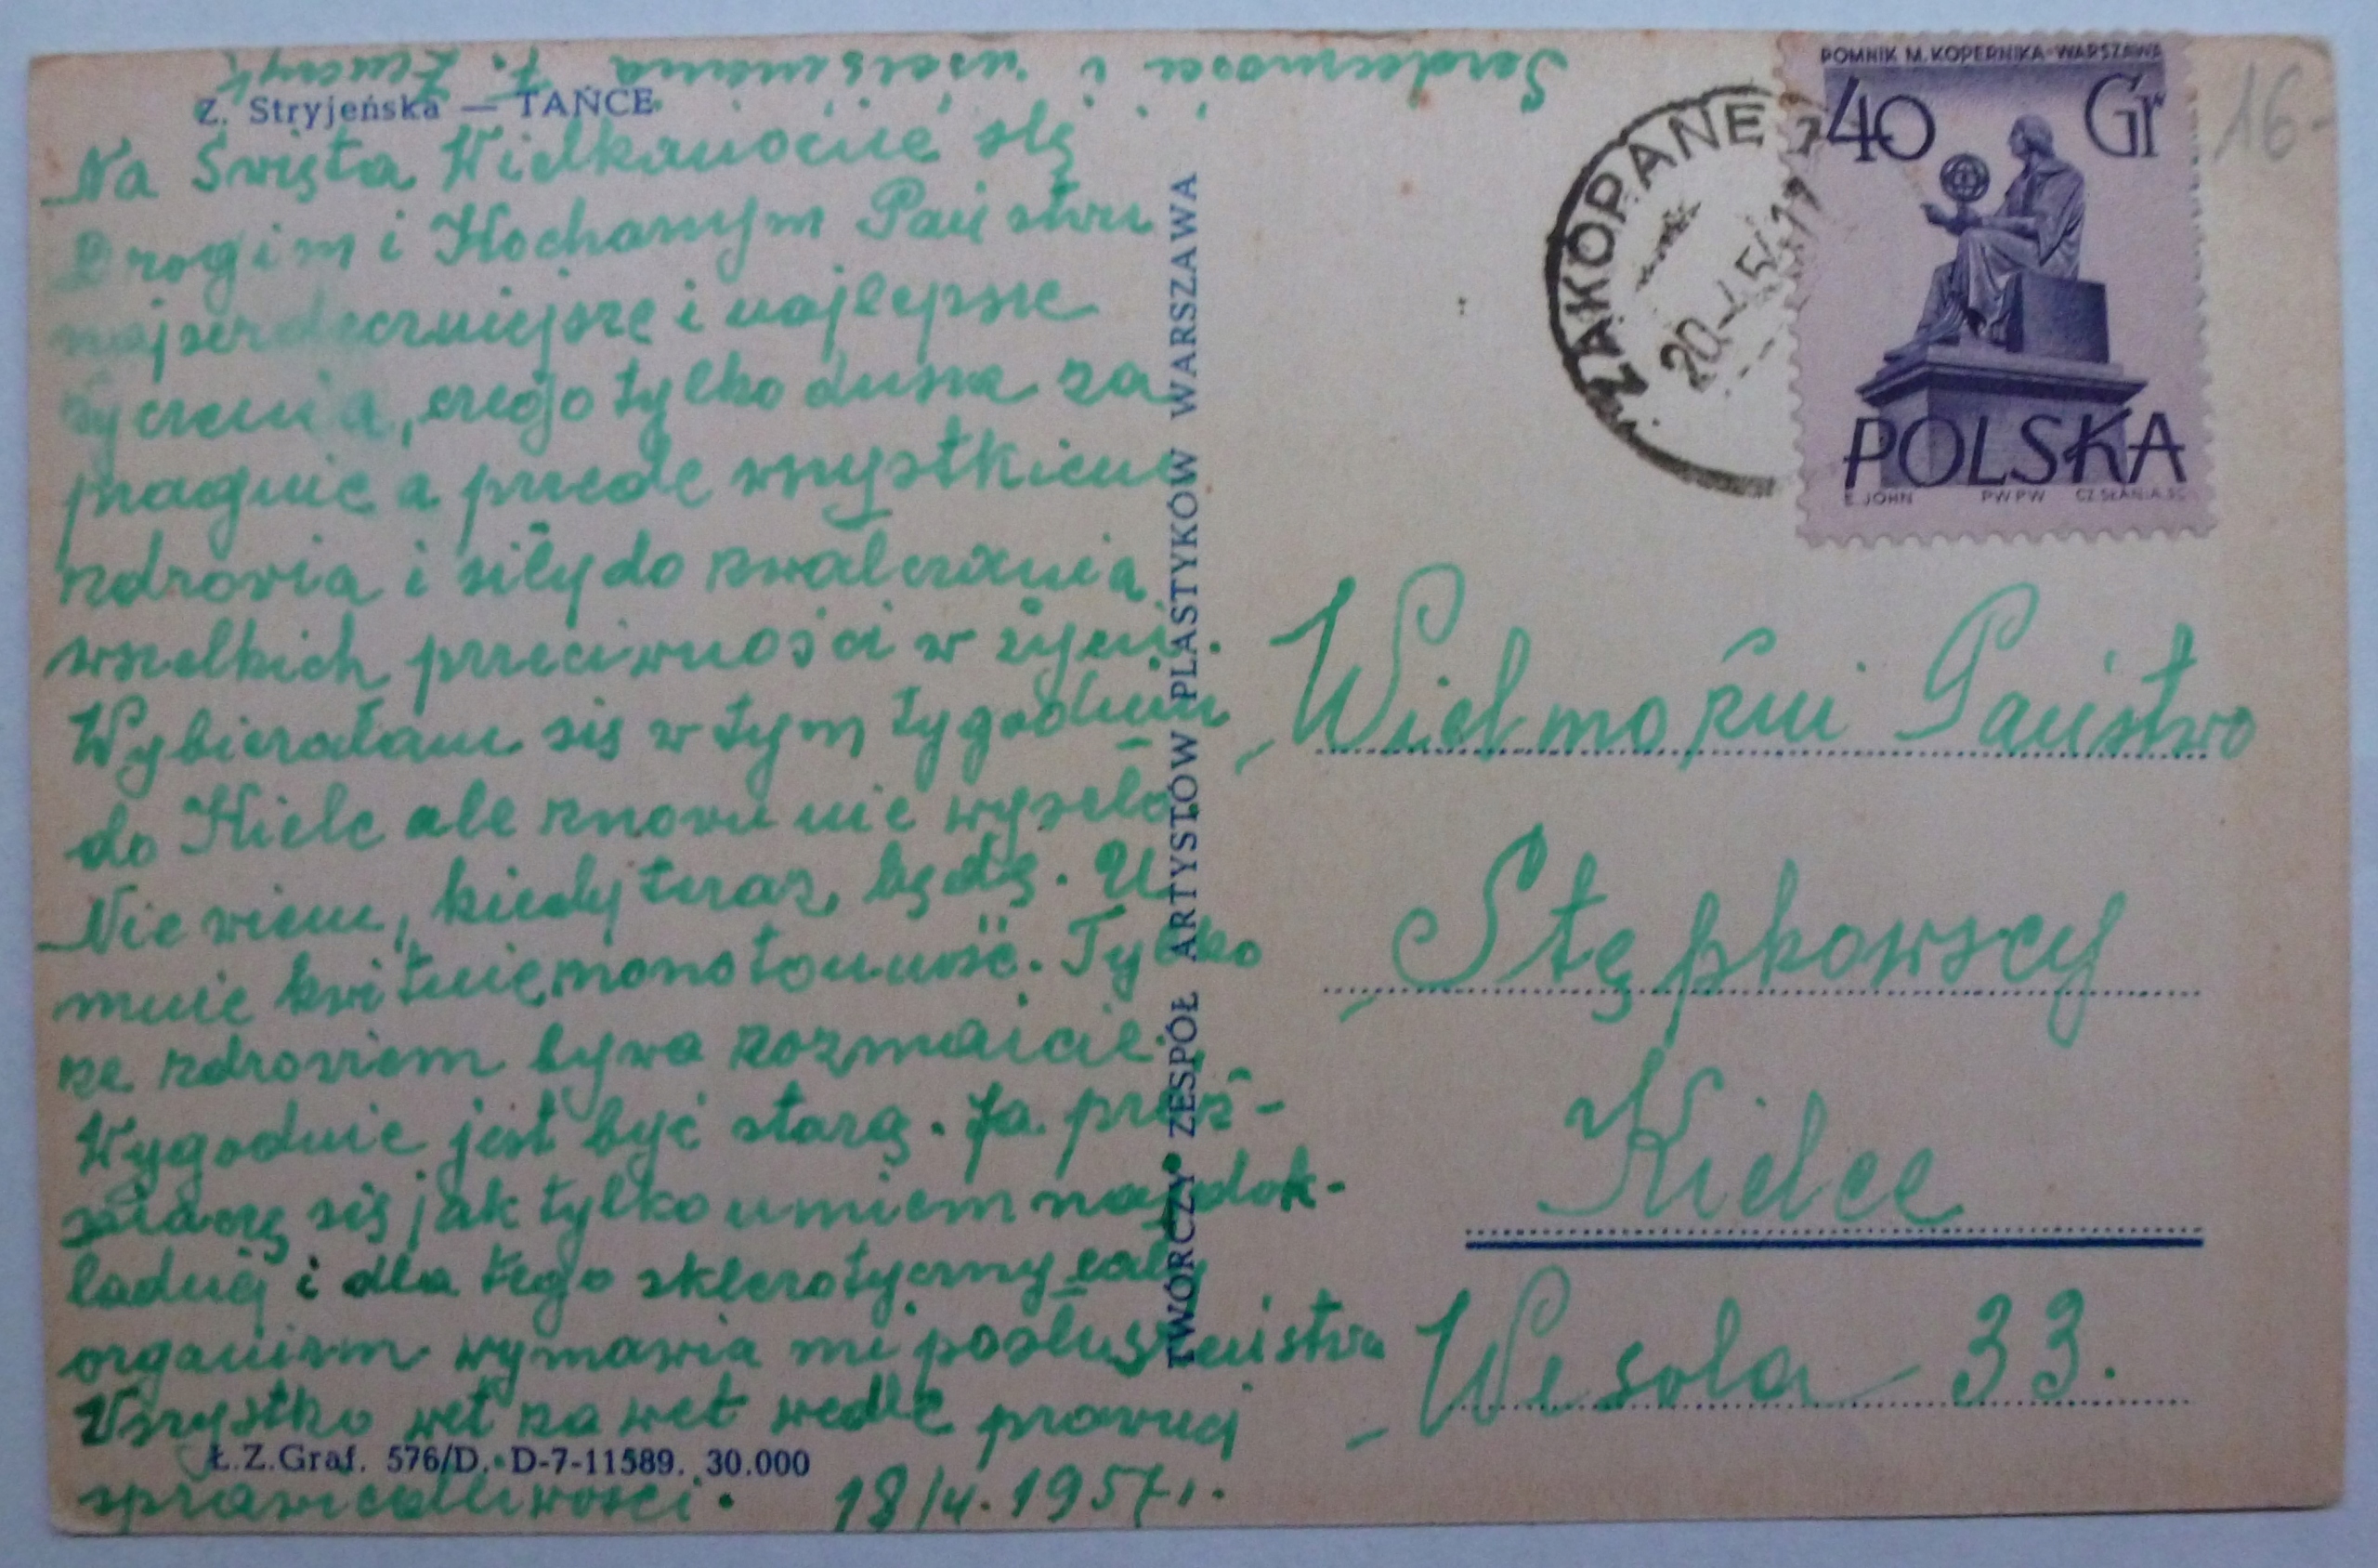 Z. Stryjeńska — TAŃCE
Na Święta Wielkanocne ślę
Drogim i Kochanym Państwu
najserdeczniejsze i najlepsze
życzenia, czego tylko dusza za
pragnie a przede wszystkiem
zdrowia i siły do zwalczania
wszelkich przeciwności w życiu.
Wybierałam się w tym tygodniu
do Kielc ale znowu nie wyszło
Nie wiem, kiedy teraz będę. U
mnie kwitnie monotonność. Tylko
ze zdrowiem bywa rozmaicie.
Wygodnie jest być starą. Ja
się jak tylko umiem najdok-
ładniej i dla tego sklerotyczny cały
organizm wymawia mi posłuszeństwa
Wszystko wet za wet wedle prawnej
Ł.Z.Graf. 576/D. D-7-11589. 30.000
sprawiedliwości. 18/4. 1957 r.
Serdeczności i uściśnienia
TWÓRCZY ZESPÓŁ ARTYSTÓW PLASTYKÓW WARSZAWA
ZAKOPANE
POMNIK M. KOPERNIKA-WARSZAWA
40 Gr
POLSKA
E. JOHN PWPW CZ SŁANIA SC
16-
Wielmożni Państwo
Stępkowscy
Kielce
Wesoła 33.